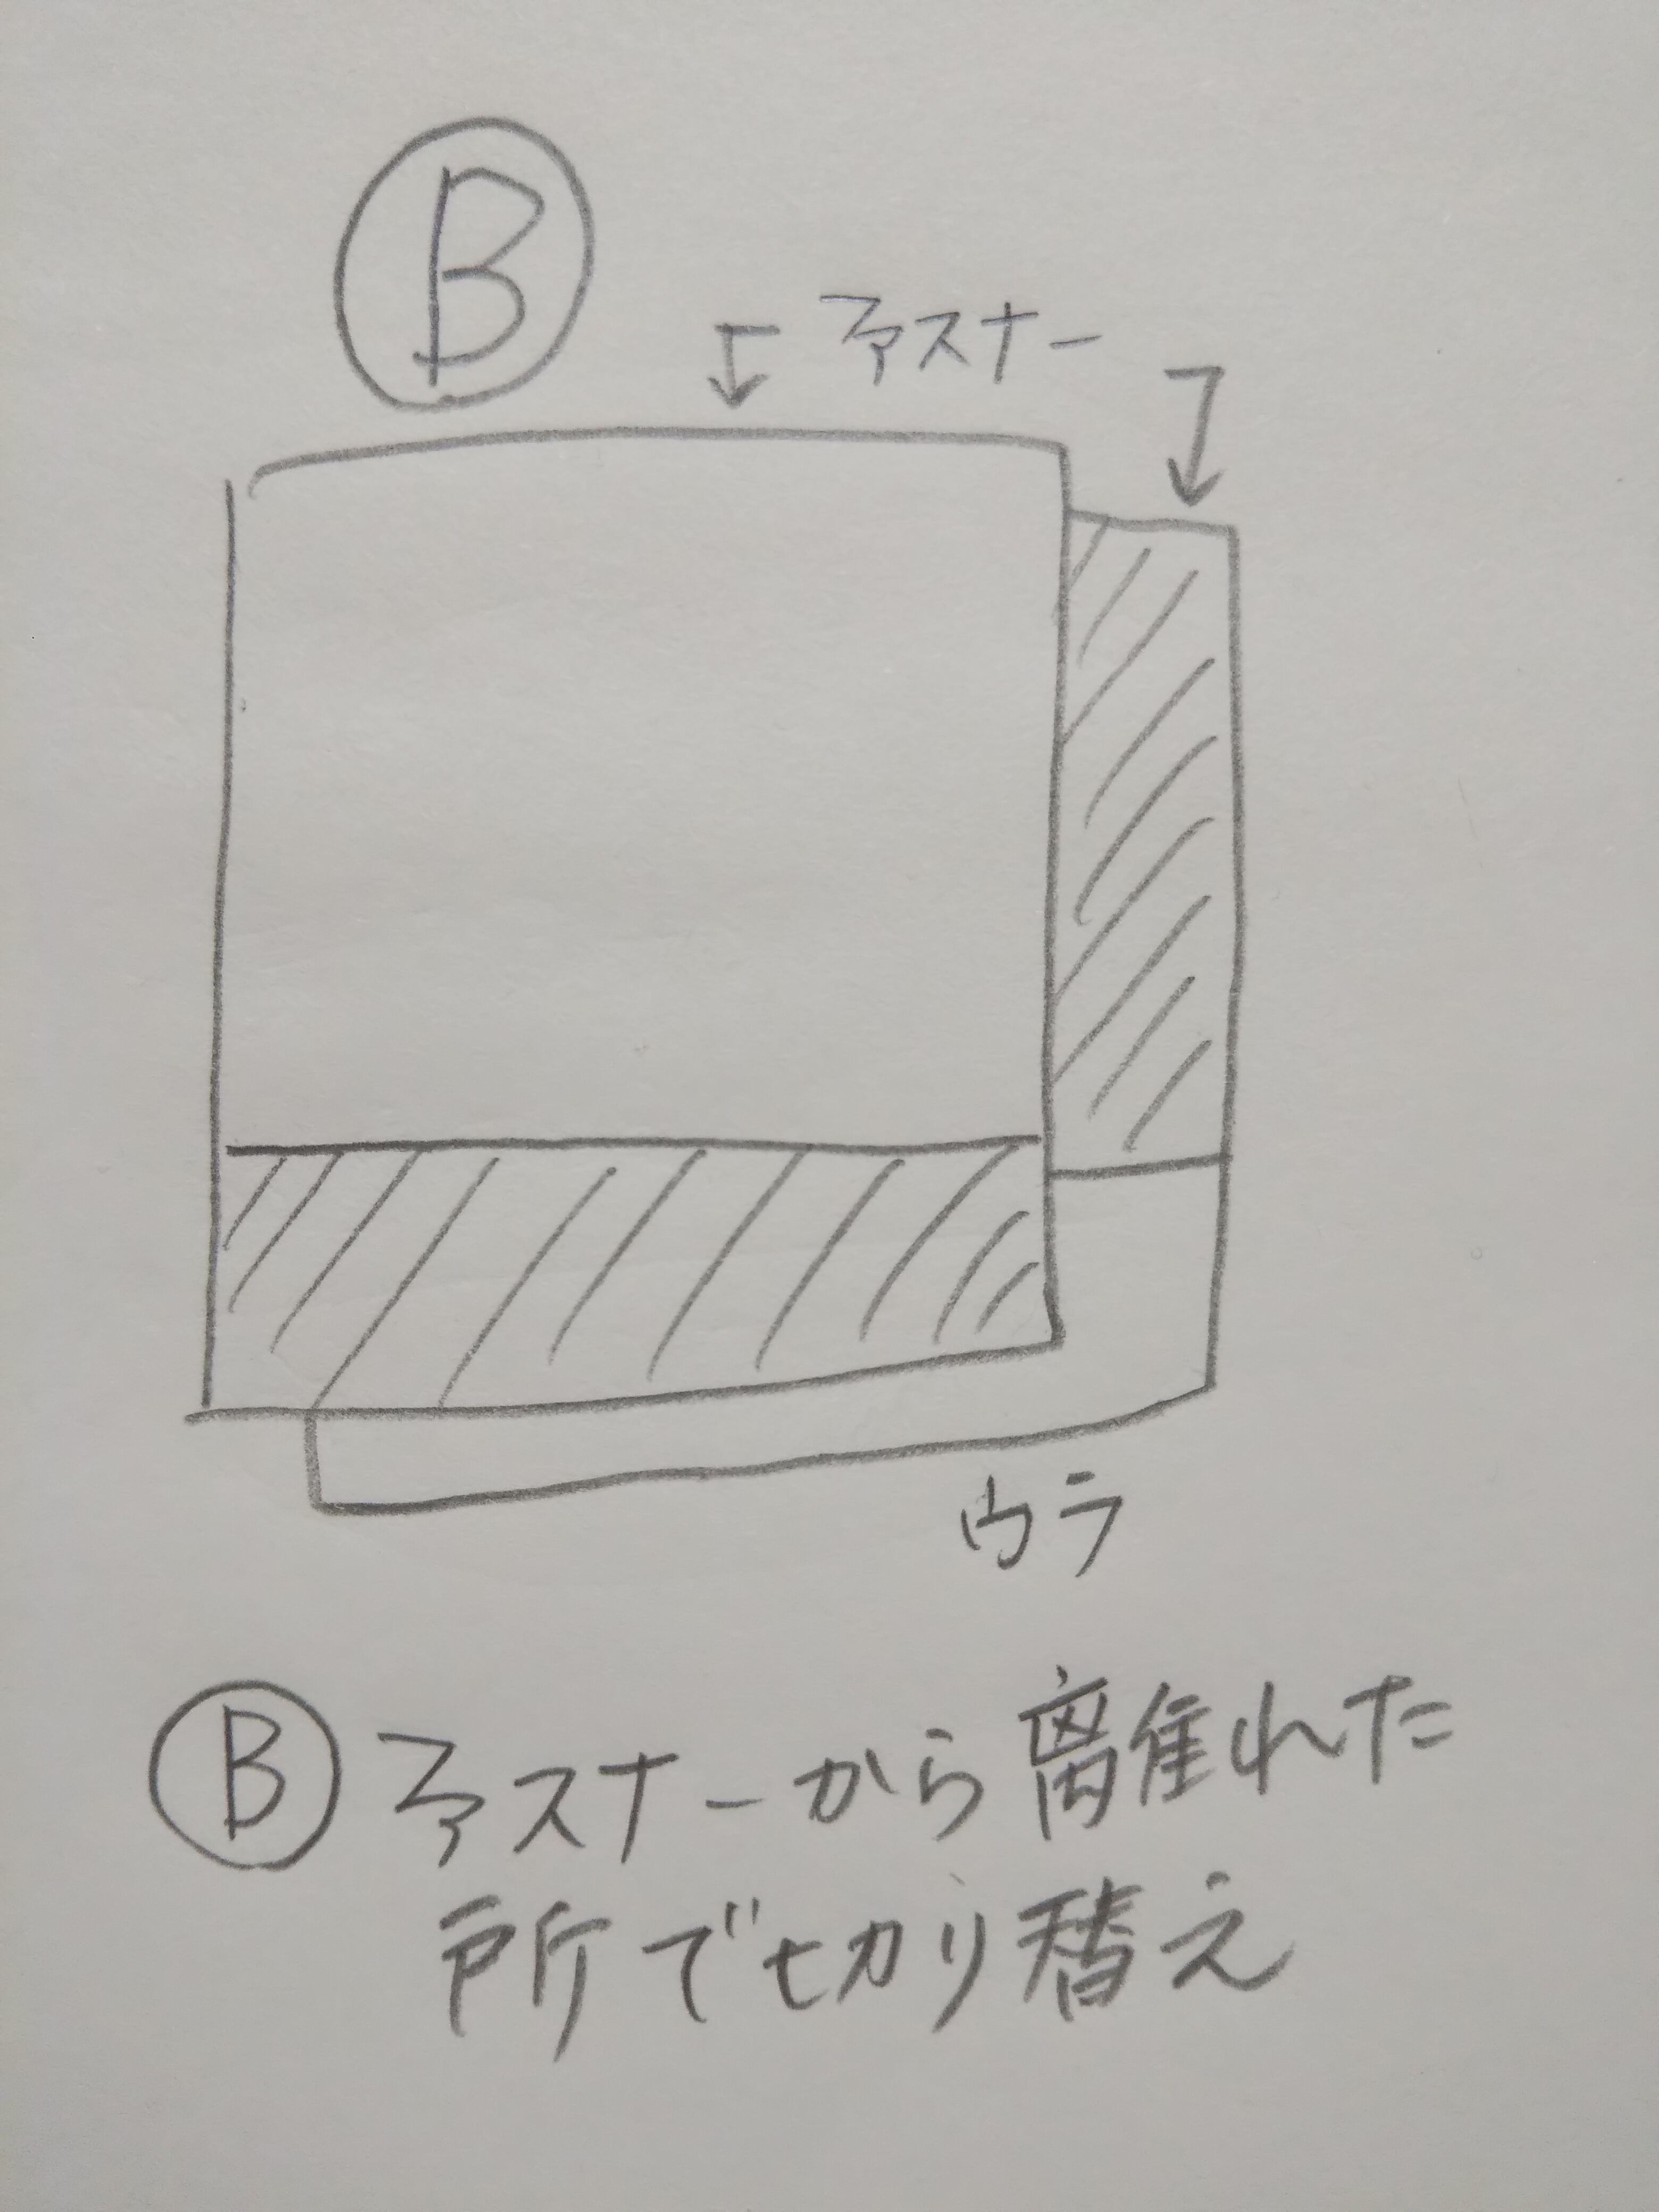 B
ファスナー
ウラ
B ファスナーから離れた
所で切り替え